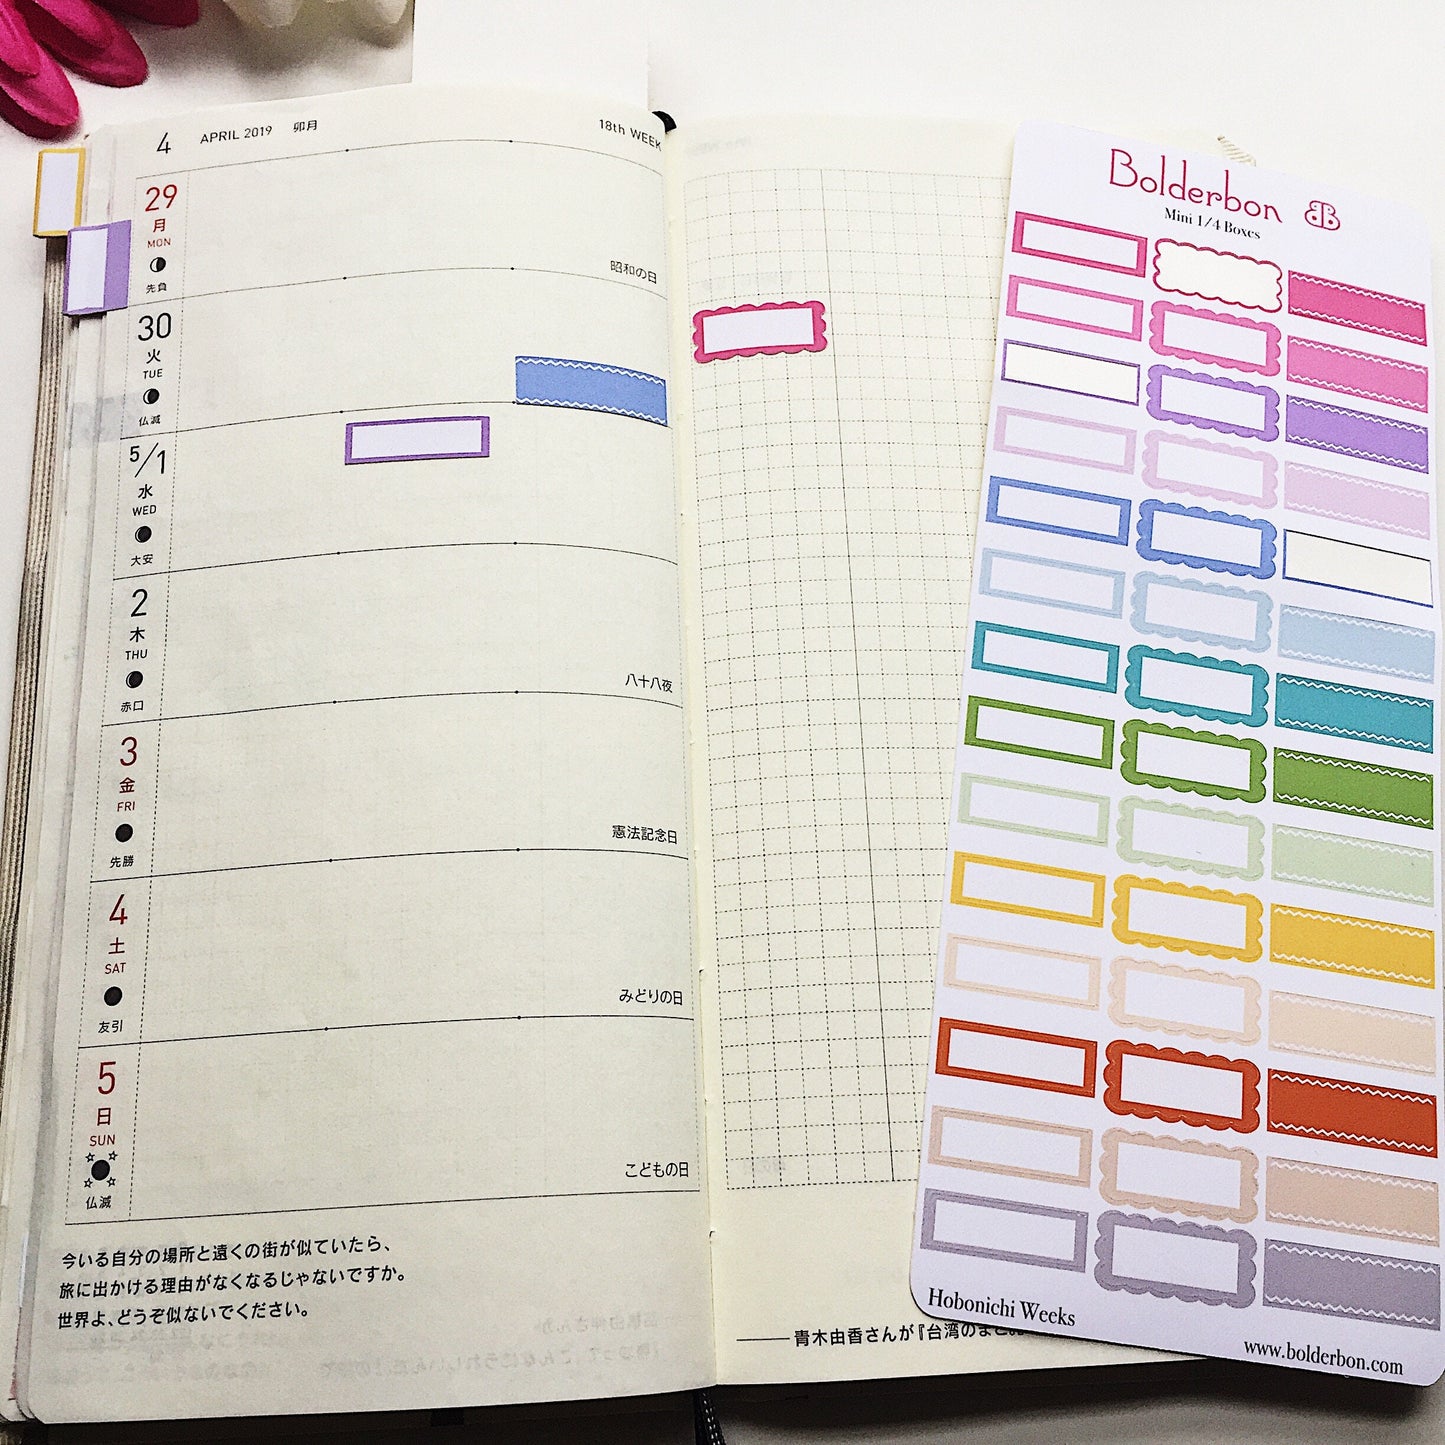 4 APRIL 2019 卯月 18th WEEK
29
月
MON
先負
昭和の日
30
火
TUE
仏滅
5/1
水
WED
大安
2
木
THU
赤口
八十八夜
3
金
FRI
先勝
憲法記念日
4
土
SAT
友引
みどりの日
5
日
SUN
仏滅
こどもの日
今いる自分の場所と遠くの街が似ていたら、
旅に出かける理由がなくなるじゃないですか。
世界よ、どうぞ似ないでください。
青木由香さんが『台湾のまと
Bolderbon BB
Mini 1/4 Boxes
Hobonichi Weeks
www.bolderbon.com